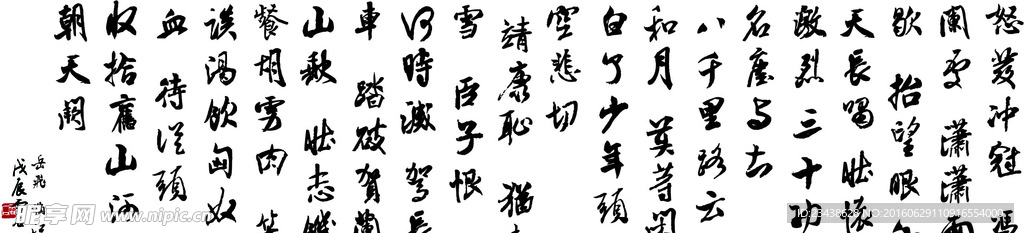 怒发冲冠 冯
阑处 潇潇雨
歇 抬望眼 仰
天长啸 壮怀
激烈 三十功
名尘与土
八千里路云
和月 莫等闲
白了少年头
空悲切
靖康耻 犹
雪 臣子恨
何时灭 驾长
車 踏破贺蘭
山缺 壮志饥
餐胡虏肉 笑
谈渴饮匈奴
血 待從頭
收拾舊山河
朝天闕
岳飛
戊辰
昵享网 www.nipic.cn